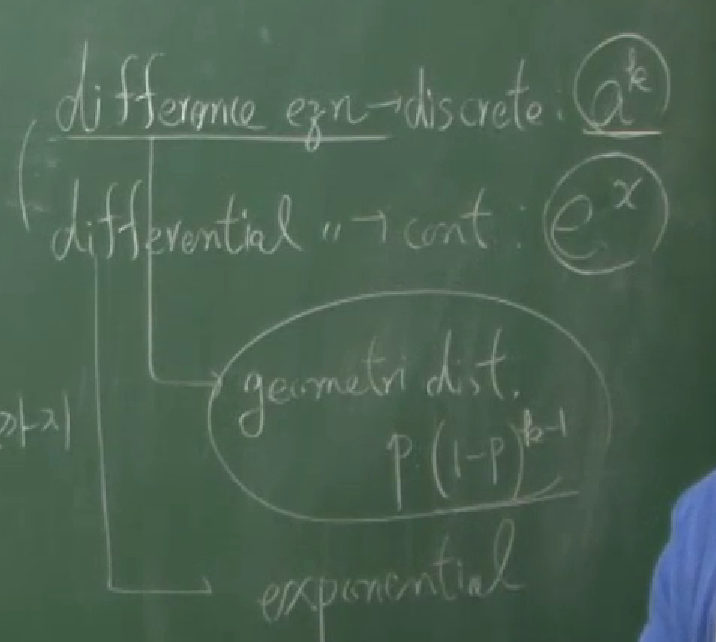 difference eqn → discrete : a^k
differential 〃 → cont : e^x
geometri dist.
p (1-p)^{k-1}
exponential